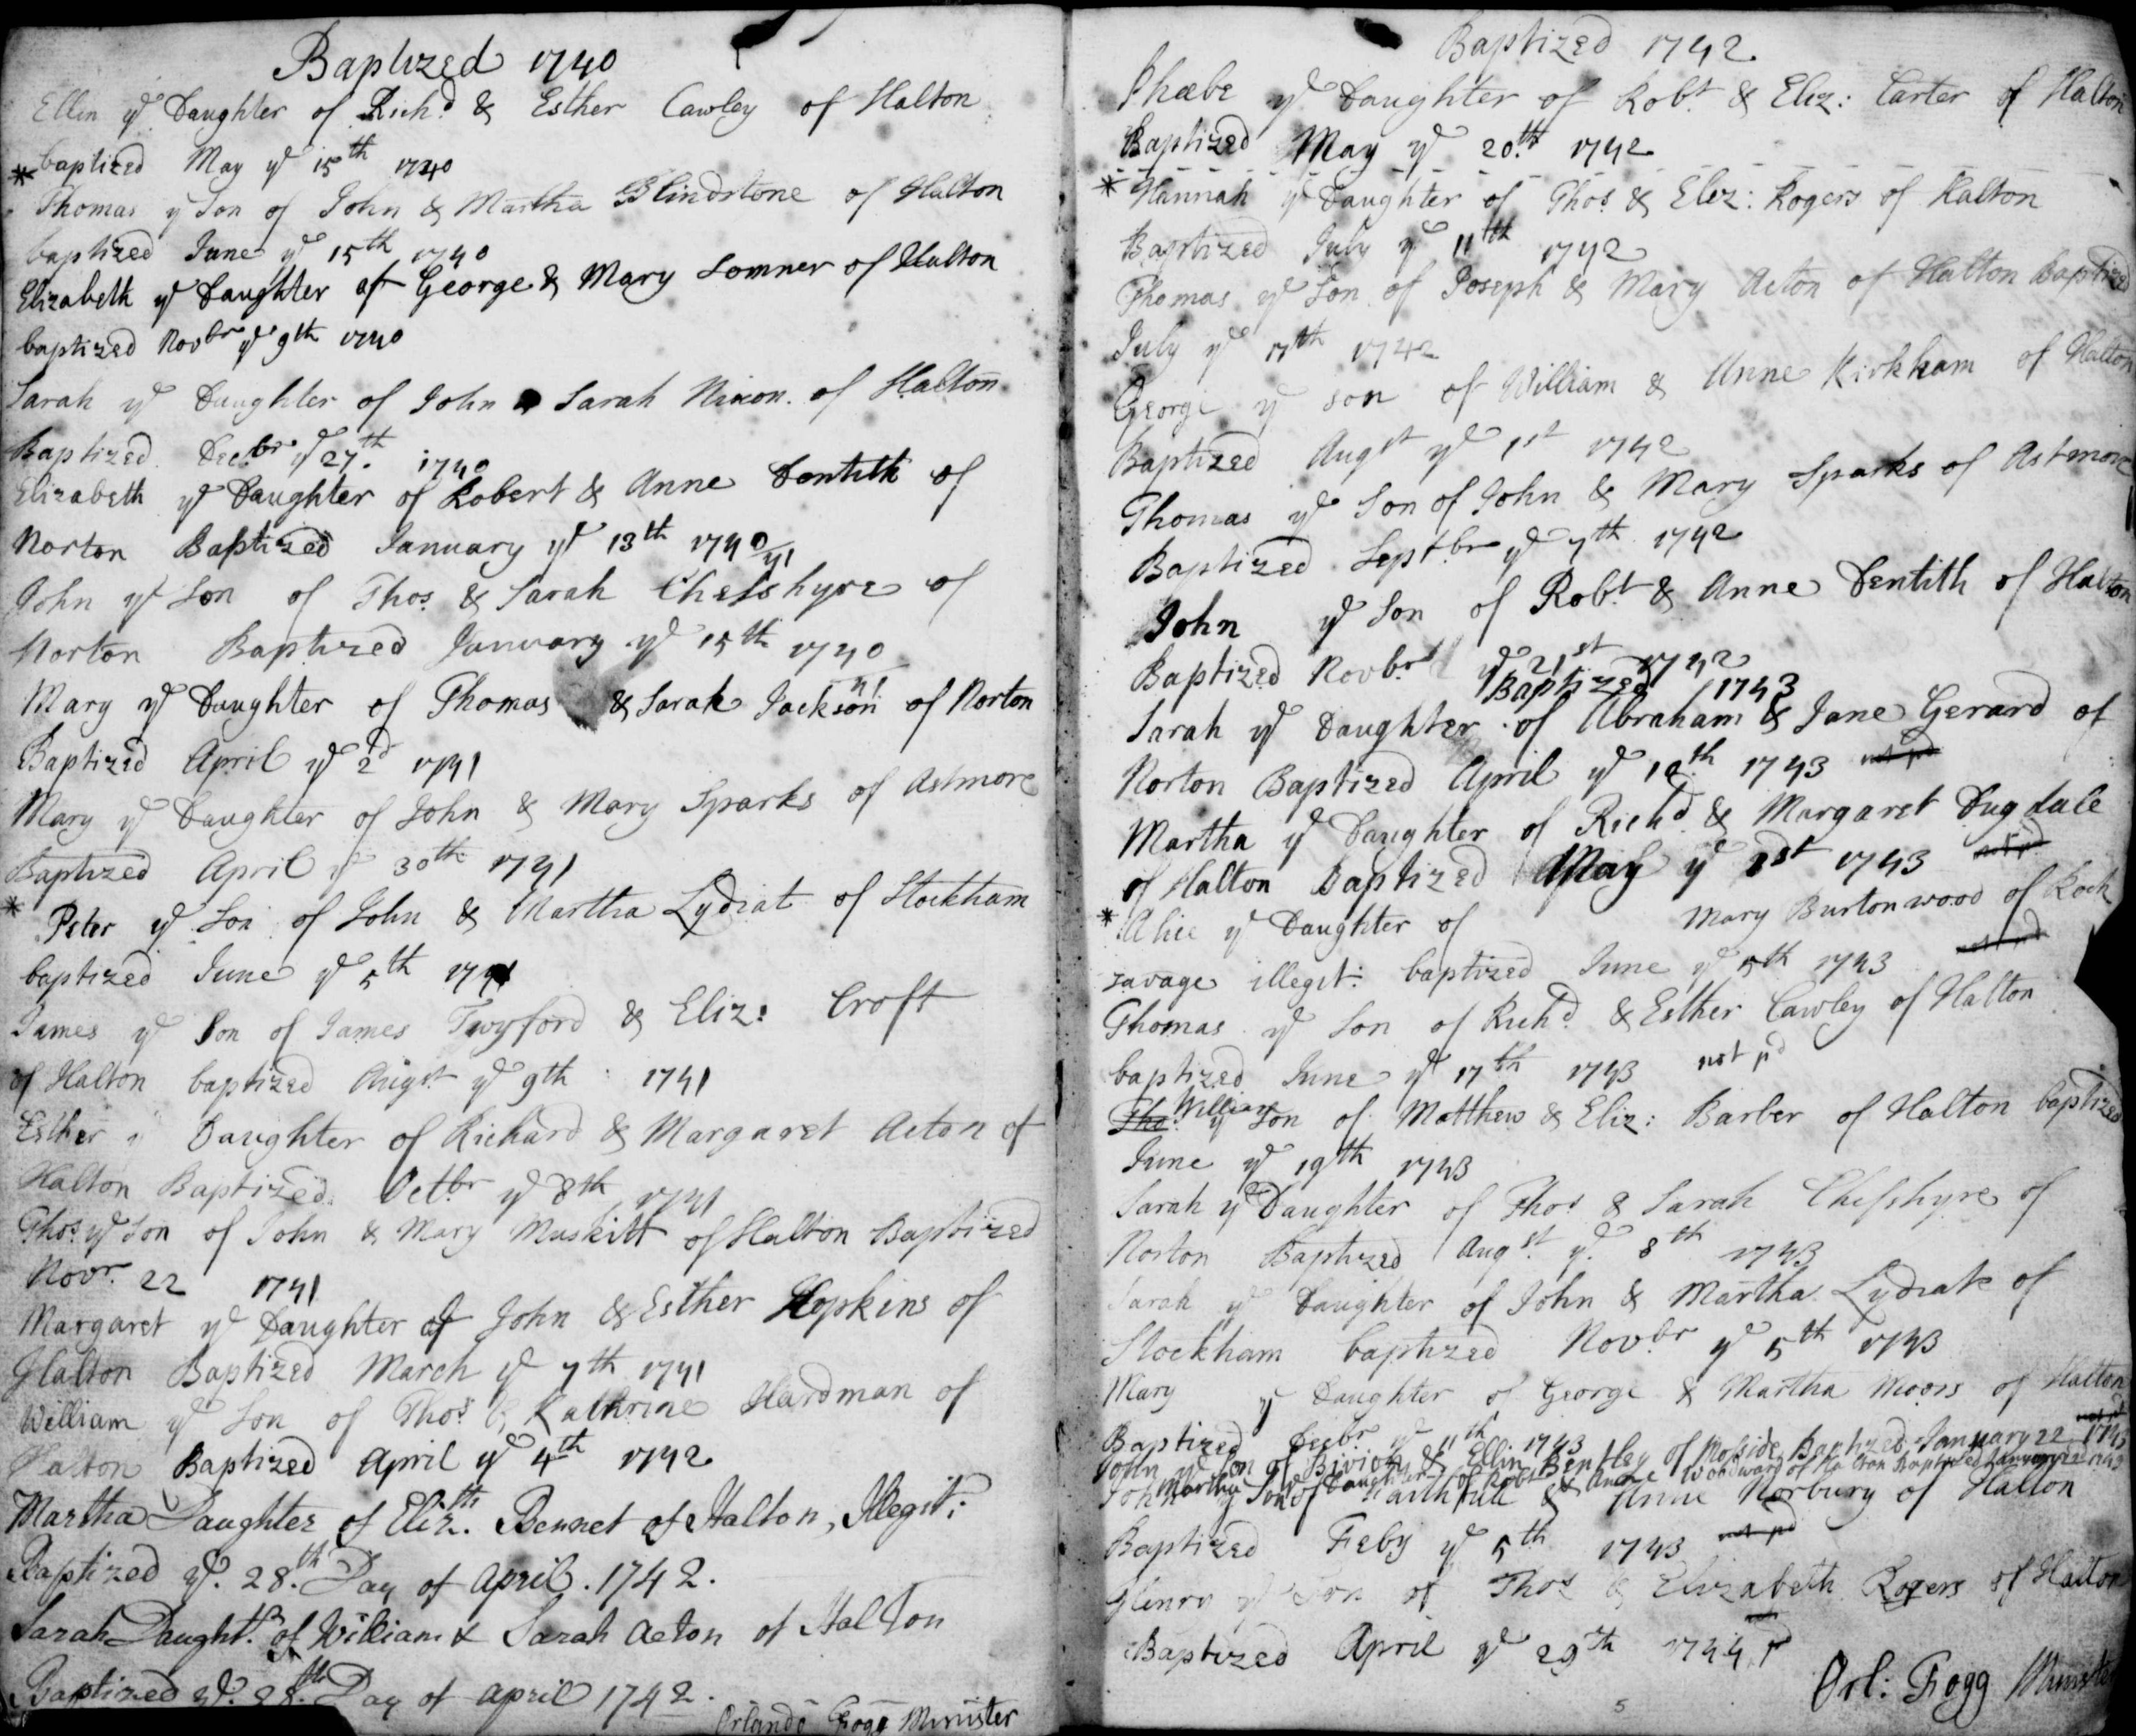 Baptized 1740
Ellin ye Daughter of Richd & Esther Cawley of Halton
* baptized May ye 15th 1740
Thomas ye Son of John & Martha Blindstone of Halton
baptized June ye 15th 1740
Elizabeth ye Daughter of George & Mary Somner of Halton
baptized Novbr ye 9th 1740
Sarah ye Daughter of John & Sarah Nixon of Halton
Baptized Decbr ye 27th 1740
Elizabeth ye Daughter of Robert & Anne Dentith of
Norton Baptized January ye 13th 1740/41
John ye Son of Thos & Sarah Chesshyre of
Norton Baptized January ye 15th 1740/41
Mary ye Daughter of Thomas & Sarah Jackson of Norton
Baptized April ye 2d 1741
Mary ye Daughter of John & Mary Sparks of Astmore
Baptized April ye 30th 1741
* Peter ye Son of John & Martha Lydiat of Stockham
baptized June ye 5th 1741
James ye Son of James Twyford & Eliz: Croft
of Halton baptized Augst ye 9th 1741
Esther ye Daughter of Richard & Margaret Acton of
Halton Baptized Octbr ye 8th 1741
Thos ye Son of John & Mary Muskitt of Halton Baptized
Novr 22 1741
Margaret ye Daughter of John & Esther Hopkins of
Halton Baptized March ye 7th 1741
William ye Son of Thos & Kathrine Hardman of
Halton Baptized April ye 4th 1742
Martha Daughter of Elizth Bennet of Halton, Illegit:
Baptized ye 28th Day of April. 1742.
Sarah Daughtr of William & Sarah Acton of Halton
Baptized ye 28th Day of April 1742.
Orlando Fogg Minister
Baptized 1742
Phœbe ye Daughter of Robt & Eliz: Carter of Halton
Baptized May ye 20th 1742
* Hannah ye Daughter of Thos & Eliz: Rogers of Halton
Baptized July ye 11th 1742
Thomas ye Son of Joseph & Mary Acton of Halton Baptized
July ye 17th 1742
George ye son of William & Anne Kirkham of Halton
Baptized Augst ye 1st 1742
Thomas ye Son of John & Mary Sparks of Astmore
Baptized Septbr ye 7th 1742
John ye Son of Robt & Anne Dentith of Halton
Baptized Novbr ye 21st 1742
Baptized 1743
Sarah ye Daughter of Abraham & Jane Gerard of
Norton Baptized April ye 12th 1743 not pd
Martha ye Daughter of Richd & Margaret Dugdale
of Halton Baptized May ye 1st 1743 not pd
* Alice ye Daughter of Mary Burtonwood of Rock
savage illegit: baptized June ye 5th 1743 not pd
Thomas ye Son of Richd & Esther Cawley of Halton
baptized June ye 17th 1743 not pd
Tho William ye Son of Matthew & Eliz: Barber of Halton baptized
June ye 19th 1743
Sarah ye Daughter of Thos & Sarah Chesshyre of
Norton Baptized Augst ye 8th 1743
Sarah ye Daughter of John & Martha Lydiate of
Stockham baptized Novbr ye 5th 1743
Mary ye Daughter of George & Martha Moors of Halton
Baptized Decbr ye 11th 1743 not pd
John ye Son of & Ellin Bentley of Baptized January 22 1743
Martha ye Daughter of Robt & Anne Woodward of Halton Baptized January 1743
John ye Son of & Anne Norbury of Halton
Baptized Feby ye 5th 1743 not pd
Henry ye Son of Thos & Elizabeth Rogers of Halton
Baptized April ye 29th 1744
Orl: Fogg Minister